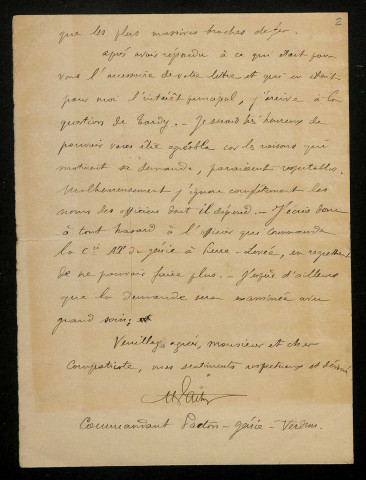 2
que les plus massives broches de fer.
après avoir répondu à ce qui était pour
vous l'accessoire de votre lettre et qui en était
pour moi l'intérêt principal, j'arrive à la
question de Tardy. — Je serais très heureux de
pouvoir vous être agréable car les raisons qui
motivent sa demande, paraissent respectables.
Malheureusement j'ignore complètement les
noms des officiers dont il dépend. — J'écris donc
à tout hasard à l'officier qui commande
la Cie du génie à en regrettant
de ne pouvoir faire plus. — J'espère d'ailleurs
que la demande sera examinée avec
grand soin;
Veuillez agréer, monsieur et cher
Compatriote, mes sentiments respectueux et dévoués
Commandant génie — Verdun.